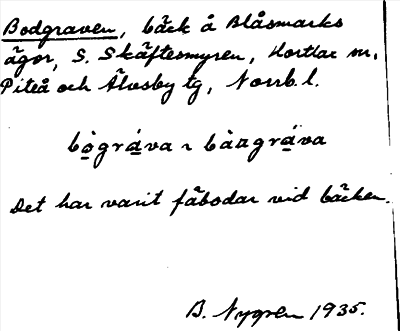 Bodgraven, bäck å Blåsmarks
ägor, S. Skäftesmyren, Hortlax sn,
Piteå och Älvsby tg, Norrb. l.
bògráva ~ bàagráva
Det har varit fäbodar vid bäcken.
B. Nygren 1935.